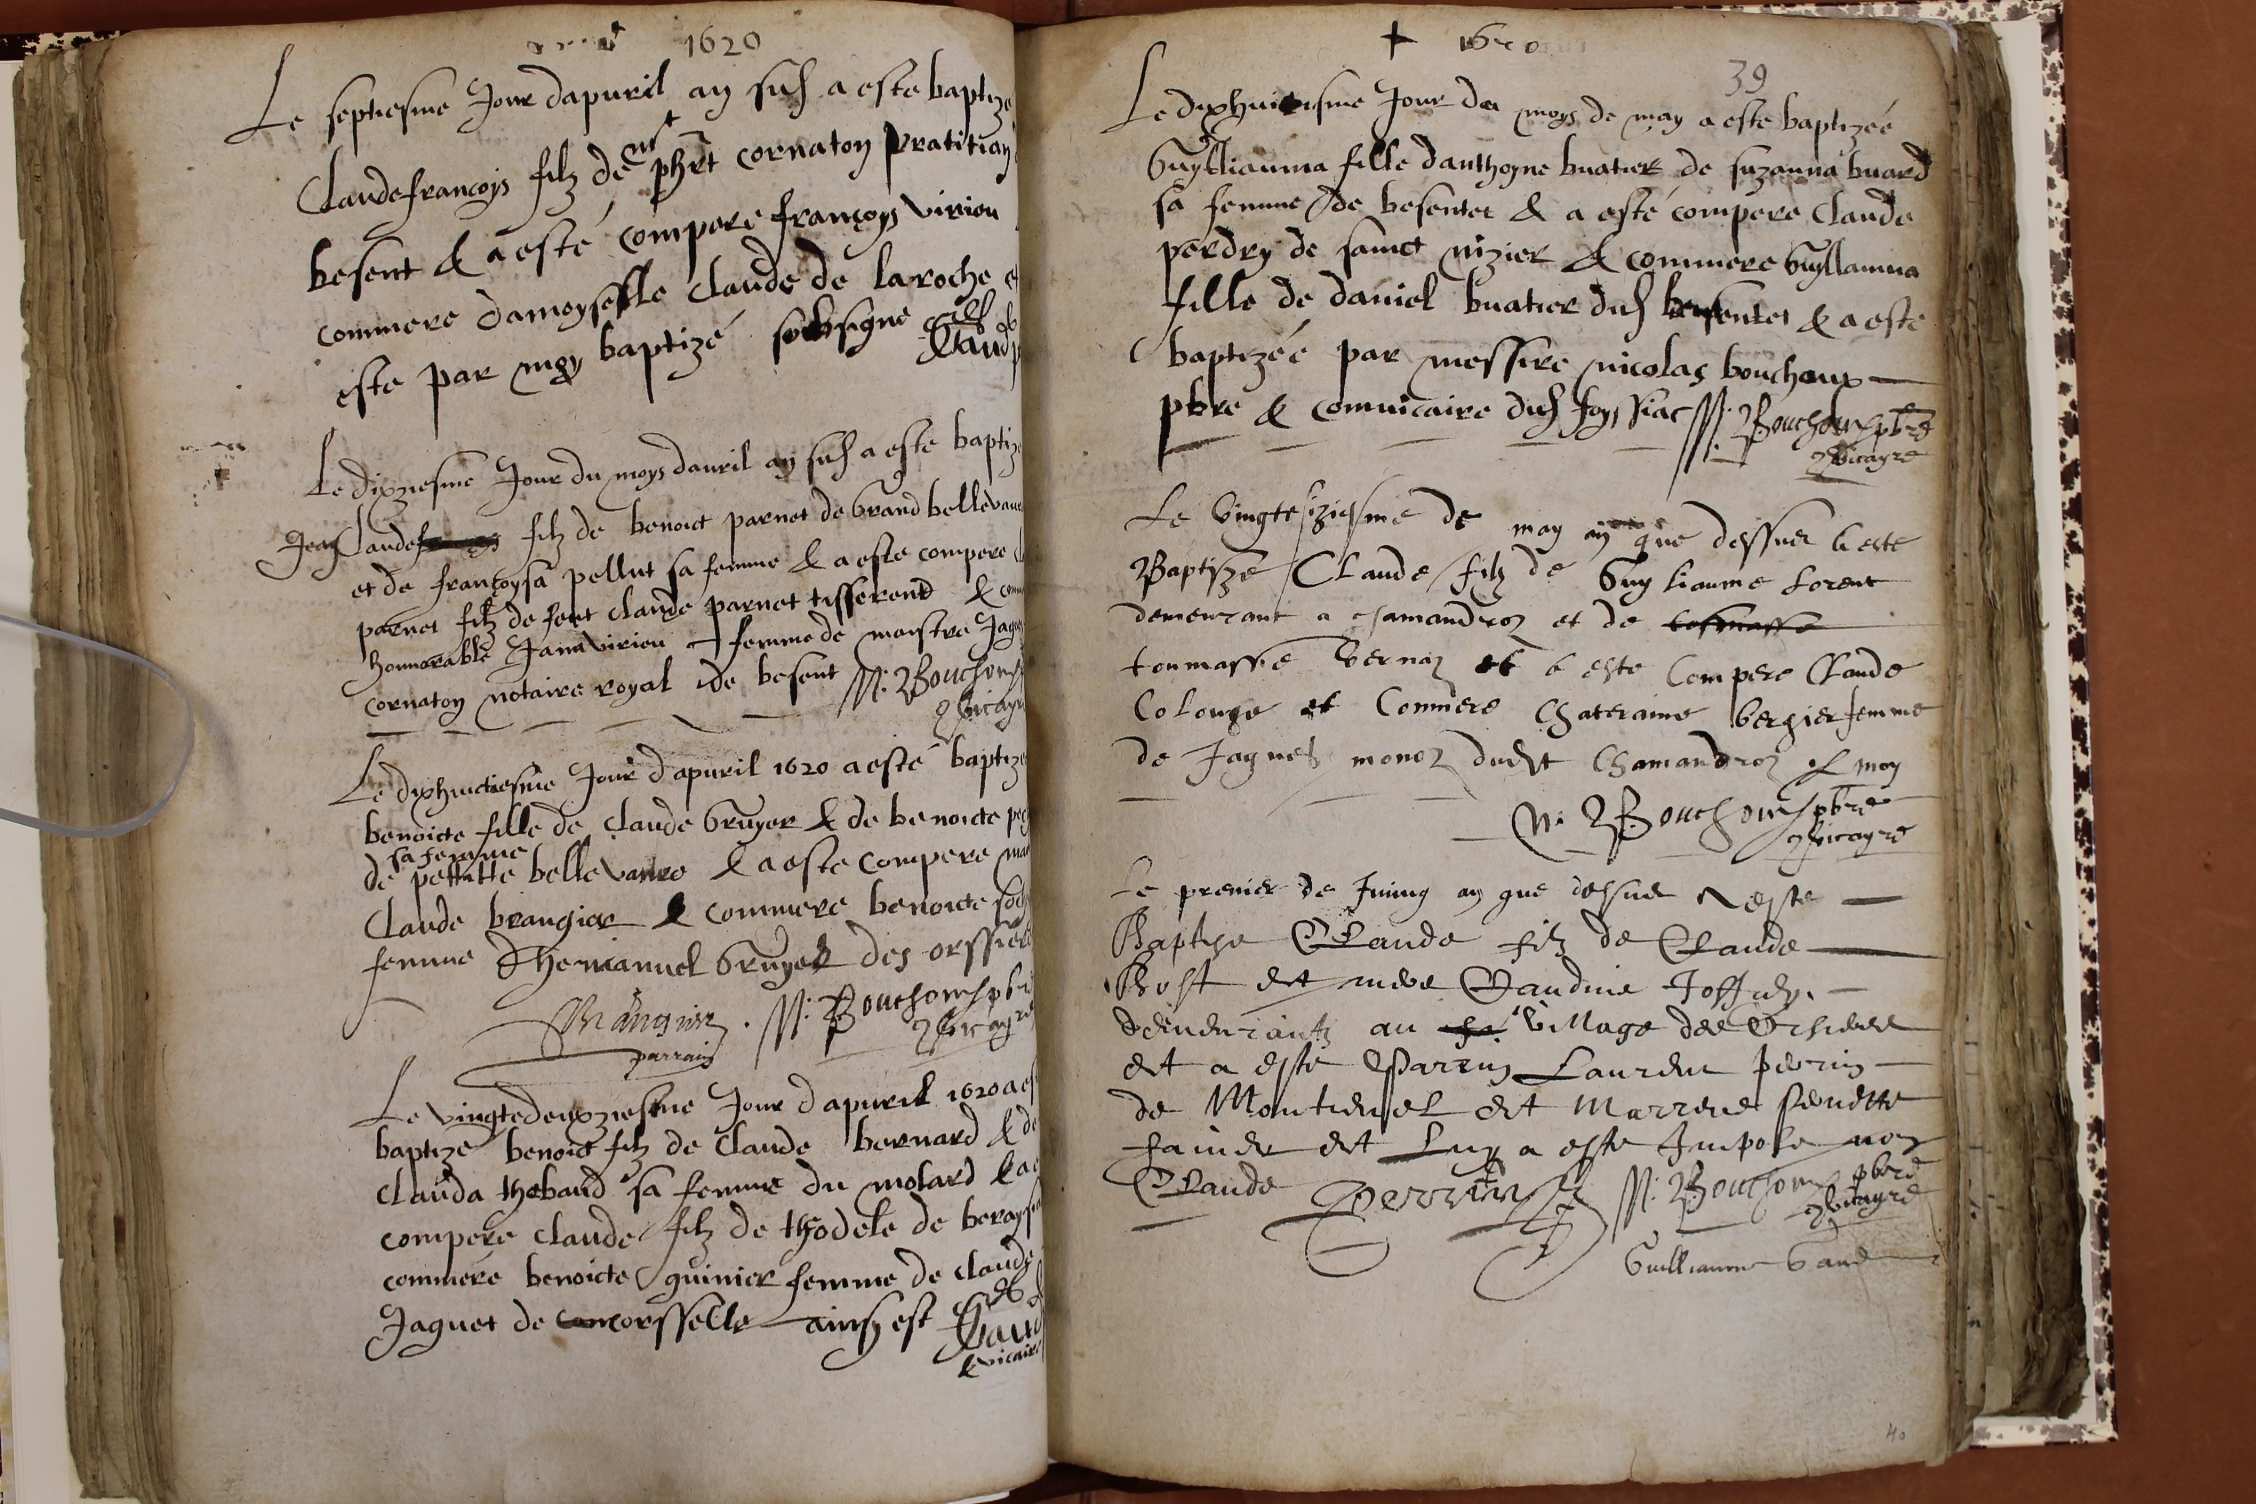 1620
Le septiesme Jour dapuril an susd a este baptize
Claudefrançoys filz de mt phrt cornaton pratitian
besent & a esté compere françoys virion
commere damoyselle Claude de laroche et
este par moy baptizé soubsigne
Le dixziesme Jour du moys dauril an susd a este baptize
Jean Claude filz de benoict parnet de Grand bellevaure
et de françoysa pellut sa femme & a este compere
parnet filz de feut Claude parnet tisserend &
honnorable Jana virion femme de maistre Jaques
cornaton notaire royal de besent N: Bouchoux
vicayre
Le dixhuictiesme Jour d'apuril 1620 a esté baptize
benoicte fille de Claude Gruyer & de benoicte
sa femme
de pettitte bellevaure & a este compere
Claude brangier & commere benoicte
femme d'hemanuel Gruyer des orssieres
Brangier N: Bouchoux pbre
parrain vicayre
Le vingtedeuxziesme Jour d'apuril 1620 a est
baptize benoict filz de Claude bernard & de
Clauda thebaud sa femme du molard & a
compere Claude filz de thodele de
commere benoicte guinier femme de Claude
Jaquet de corsselle ainsy est
& vicaire
+ 1620
39
Le dixhuictiesme Jour du moys de may a este baptizeé
Guylliauma fille danthoyne buatier de suzanna buard
sa femme de besentet & a esté compere Claude
perdry de sainct nizier & commere Guyllauma
fille de daniel buatier dud besentet & a este
baptizeé par messire nicolas bouchoux
pbre & comuicaire dud foyssiac N: Bouchoux pbre
vicayre
Le vingtesiziesme de may an que dessus a este
Baptisze Claude filz de Guylliaume Lorent
demeurant a chamandroz et de
toumasse vernoz et a este Compere Claude
Colonge et Commere Chateraine bergier femme
de Jaques monoz dudit Chamandroz & moy
N: Bouchoux pbre
vicayre
Le premier de Juing an que dessus a este
Baptise Claude filz de Claude
Bost et mere Claudine
demeurantz au village des Orsieres
et a este Parrin Laurent Perrin
de Montiensel et Marrene
et Luy a este Impose non
Claude Perrin N: Bouchoux pbre
vicayre
Guilliaume
40